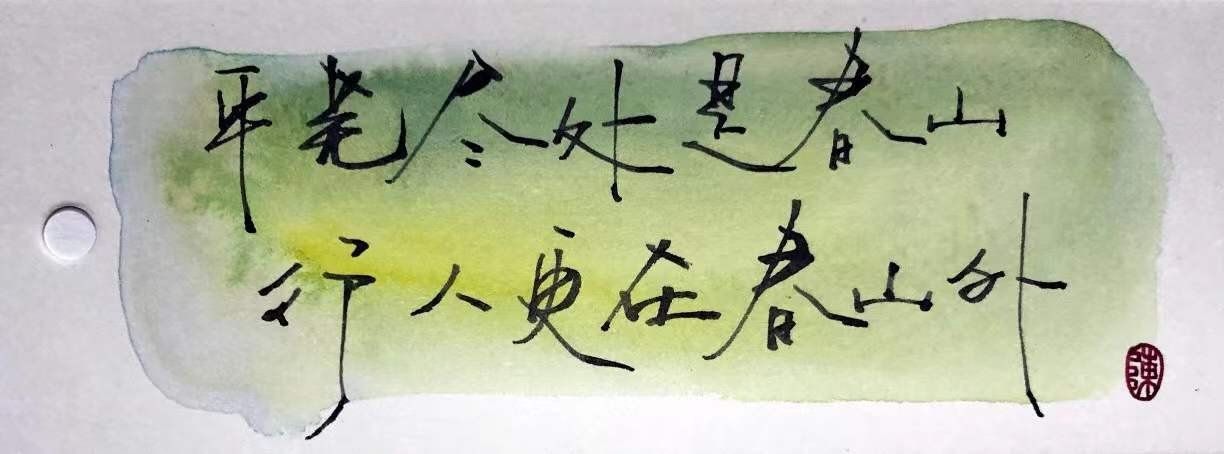 平芜尽处是春山
行人更在春山外
陳